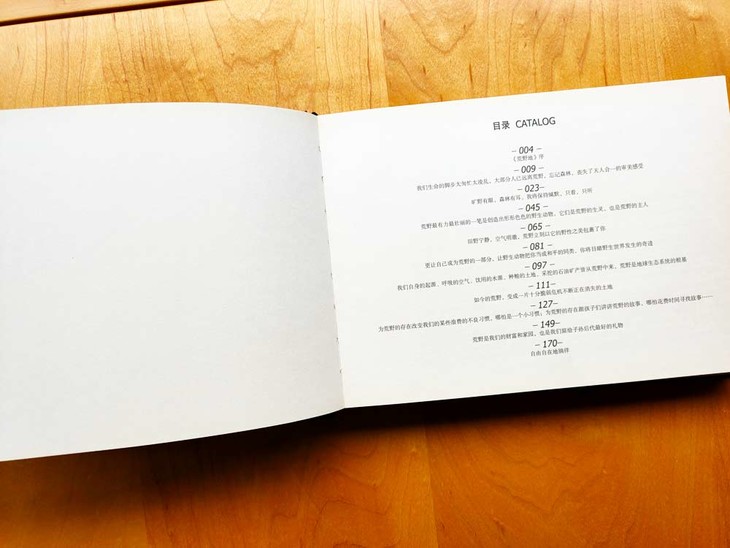 目录 CATALOG
– 004 –
《荒野地》序
– 009 –
我们生命的脚步太匆忙太凌乱，大部分人已远离荒野，忘记森林，丧失了天人合一的审美感受
– 023 –
旷野有眼，森林有耳，我将保持缄默，只看，只听
– 045 –
荒野最有力最壮丽的一笔是创造出形形色色的野生动物，它们是荒野的生灵，也是荒野的主人
– 065 –
田野宁静，空气明澈，荒野立刻以它的野性之美包裹了你
– 081 –
要让自己成为荒野的一部分，让野生动物把你当成和平的同类，你将目睹野生世界发生的奇迹
– 097 –
我们自身的起源、呼吸的空气、饮用的水源、种粮的土地、采挖的石油矿产皆从荒野中来，荒野是地球生态系统的根基
– 111 –
如今的荒野，变成一片十分脆弱危机不断正在消失的土地
– 127 –
为荒野的存在改变我们的某些浪费的不良习惯，哪怕是一个小习惯；为荒野的存在跟孩子们讲讲荒野的故事，哪怕花费时间寻找故事……
– 149 –
荒野是我们的财富和家园，也是我们留给子孙后代最好的礼物
– 170 –
自由自在地徜徉